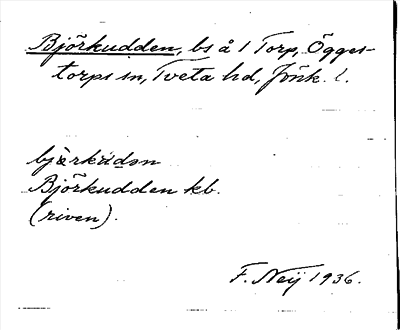 Björkudden, bs å 1 Torp, Ögges-
torps sn, Tveta hd, Jönk. l.
bjærkùdən
Björkudden kb.
(riven).
F. Neij 1936.